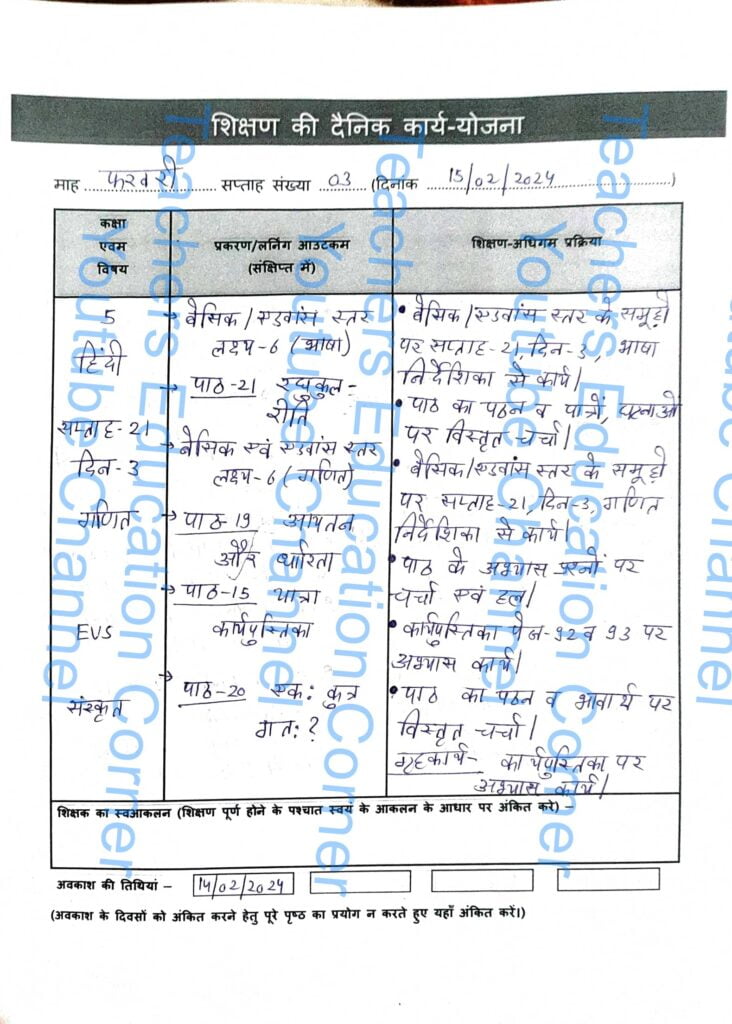 शिक्षण की दैनिक कार्य-योजना
माह फरवरी सप्ताह संख्या 03 (दिनांक 15/02/2024)
कक्षा एवम विषय
प्रकरण/लर्निंग आउटकम (संक्षिप्त में)
शिक्षण-अधिगम प्रक्रिया
5
हिंदी
सप्ताह-21
दिन-3
गणित
EVS
संस्कृत
→ बेसिक/एडवांस स्तर
लक्ष्य-6 (भाषा)
→ पाठ-21 रघुकुल-
रीति
→ बेसिक एवं एडवांस स्तर
लक्ष्य-6 (गणित)
→ पाठ-19 आयतन
और धारिता
→ पाठ-15 यात्रा
कार्यपुस्तिका
→ पाठ-20 एक: कुत्र
गत: ?
• बेसिक/एडवांस स्तर के समूहों
पर सप्ताह-21, दिन-3, भाषा
निर्देशिका से कार्य।
• पाठ का पठन व पात्रों, घटनाओं
पर विस्तृत चर्चा।
• बेसिक/एडवांस स्तर के समूहों
पर सप्ताह-21, दिन-3, गणित
निर्देशिका से कार्य।
• पाठ के अभ्यास प्रश्नों पर
चर्चा एवं हल।
• कार्यपुस्तिका पेज-92 व 93 पर
अभ्यास कार्य।
• पाठ का पठन व भावार्थ पर
विस्तृत चर्चा।
गृहकार्य- कार्यपुस्तिका पर
अभ्यास कार्य।
शिक्षक का स्वआकलन (शिक्षण पूर्ण होने के पश्चात स्वयं के आकलन के आधार पर अंकित करे) –
अवकाश की तिथियां – 14/02/2024
(अवकाश के दिवसों को अंकित करने हेतु पूरे पृष्ठ का प्रयोग न करते हुए यहाँ अंकित करें।)
Teachers Education Corner
Youtube Channel
Teachers Education Corner
Youtube Channel
Teachers Education Corner
Youtube Channel